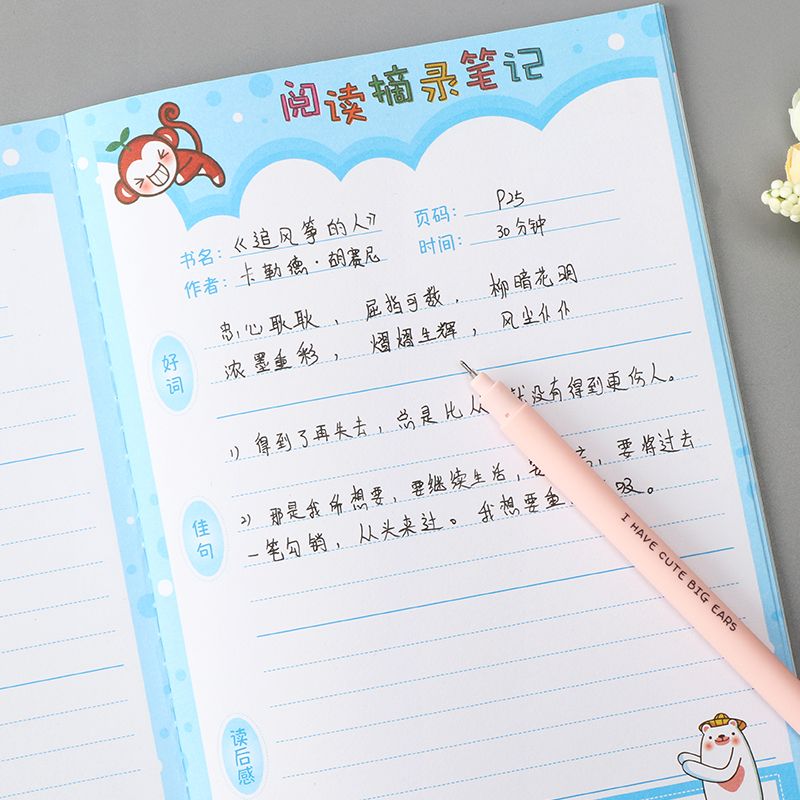 阅读摘录笔记
书名：《追风筝的人》
页码：P25
作者：卡勒德·胡赛尼
时间：30分钟
好词
忠心耿耿，屈指可数，柳暗花明
浓墨重彩，熠熠生辉，风尘仆仆
佳句
1）得到了再失去，总是比从 就没有得到更伤人。
2）那是我所想要，要继续生活， 要将过去
一笔勾销，从头来过。我想要 吸。
读后感
I HAVE CUTE BIG EARS